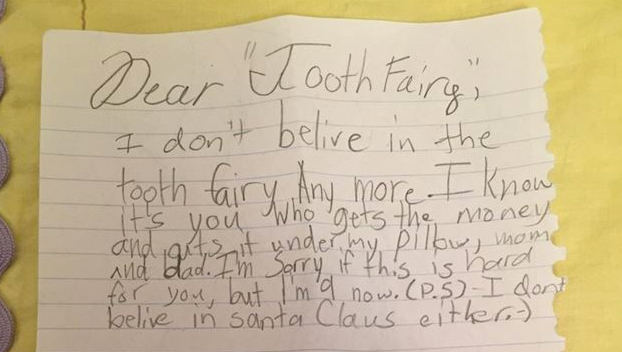 Dear "Tooth Fairy",
I don't belive in the
tooth fairy Any more. I know
it's you who gets the money
and puts it under my Pillow, mom
and dad. I'm Sorry if this is hard
for you, but I'm 9 now. (P.S)-I dont
belive in santa Claus either.-)